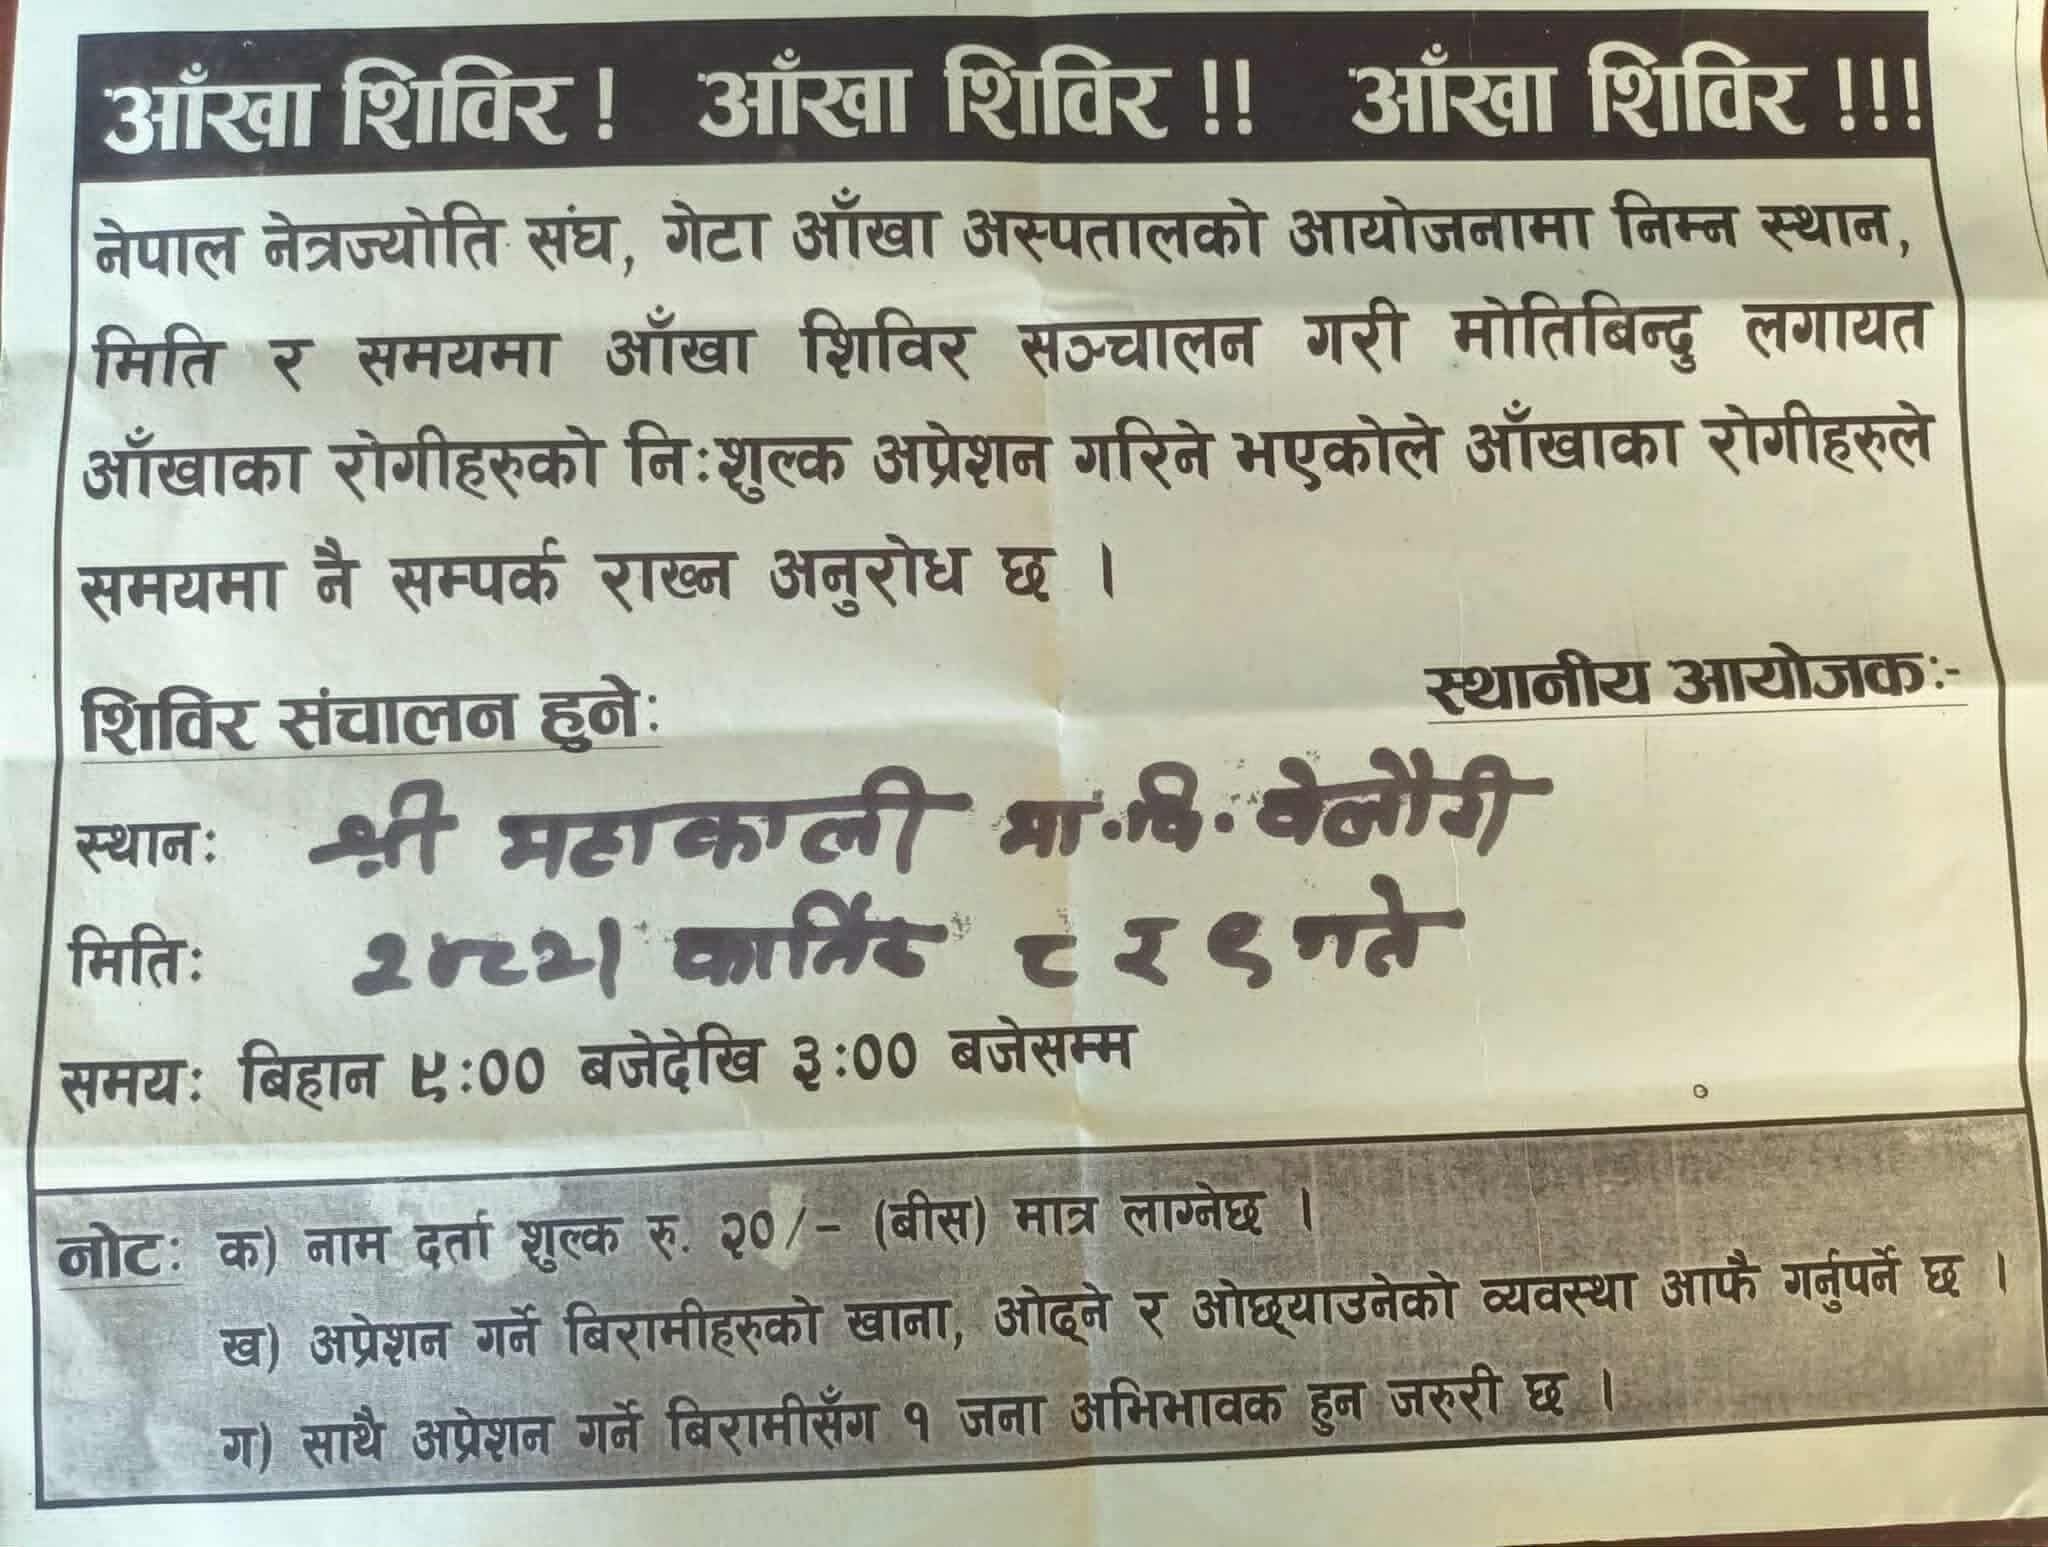 आँखा शिविर ! आँखा शिविर !! आँखा शिविर !!!
नेपाल नेत्रज्योति संघ, गेटा आँखा अस्पतालको आयोजनामा निम्न स्थान,
मिति र समयमा आँखा शिविर सञ्चालन गरी मोतिबिन्दु लगायत
आँखाका रोगीहरुको नि:शुल्क अप्रेशन गरिने भएकोले आँखाका रोगीहरुले
समयमा नै सम्पर्क राख्न अनुरोध छ ।
स्थानीय आयोजक:-
शिविर संचालन हुने:
स्थान: श्री महाकाली मा.वि. वेलौरी
मिति: कार्तिक ८ र ९ गते
समय: बिहान ९:०० बजेदेखि ३:०० बजेसम्म
नोट: क) नाम दर्ता शुल्क रु. २०/- (बीस) मात्र लाग्नेछ ।
ख) अप्रेशन गर्ने बिरामीहरुको खाना, ओढ्ने र ओछ्याउनेको व्यवस्था आफै गर्नुपर्ने छ ।
ग) साथै अप्रेशन गर्ने बिरामीसँग १ जना अभिभावक हुन जरुरी छ ।